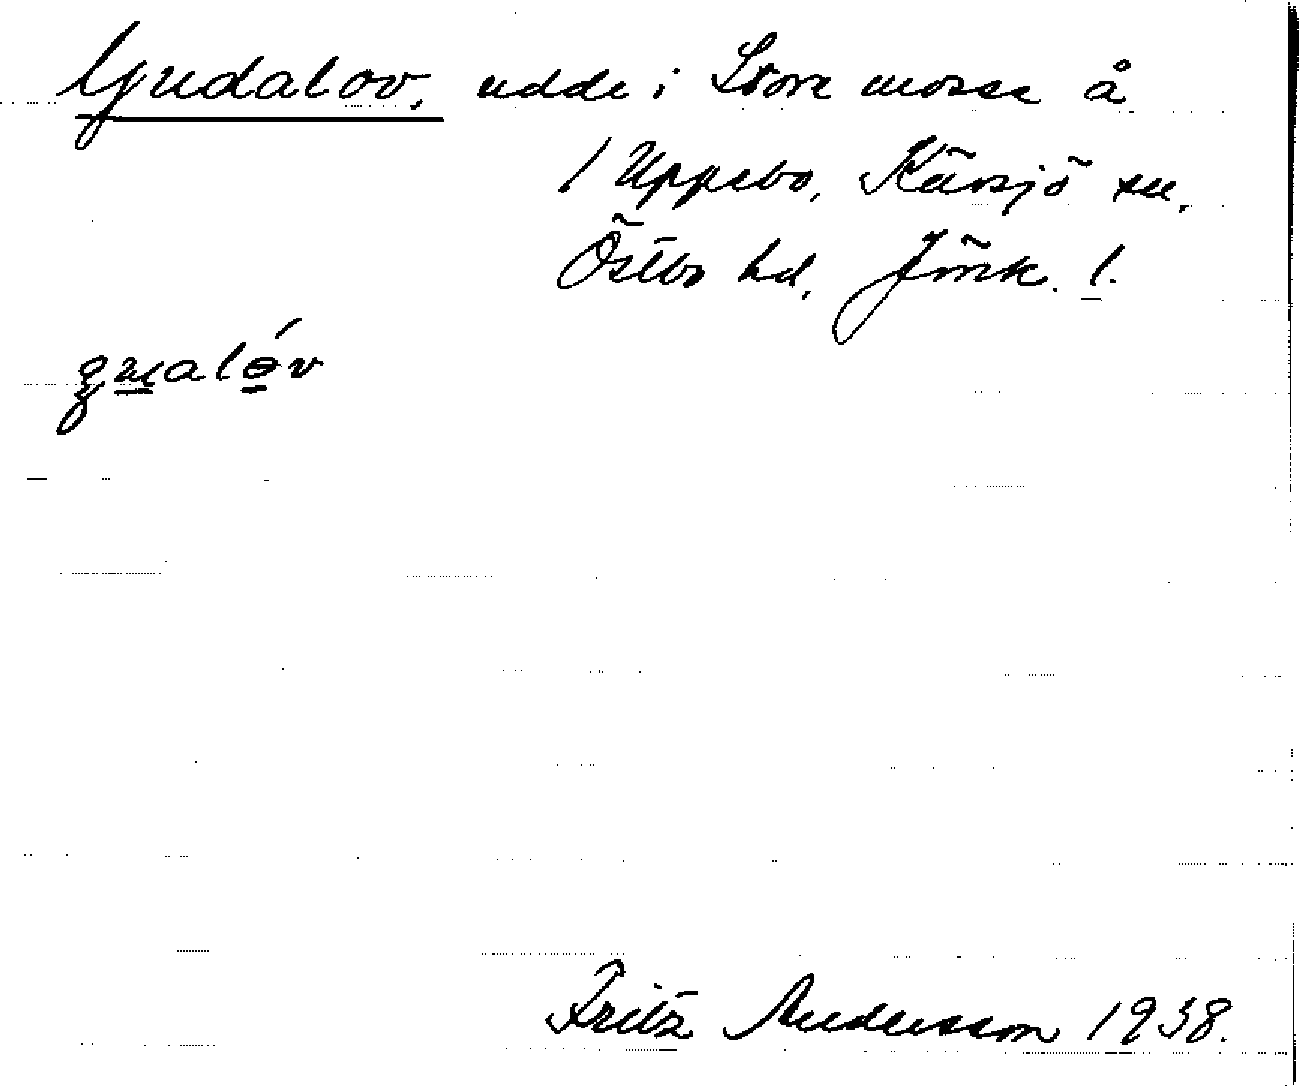 Gudalov, udde i Store mosse å
1 Uppebo, Kävsjö sn,
Östbo hd, Jönk. l.
Fritz Andersson 1938.